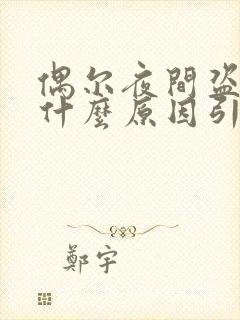 偶尔夜間盗
什麼原因引
鄭宇